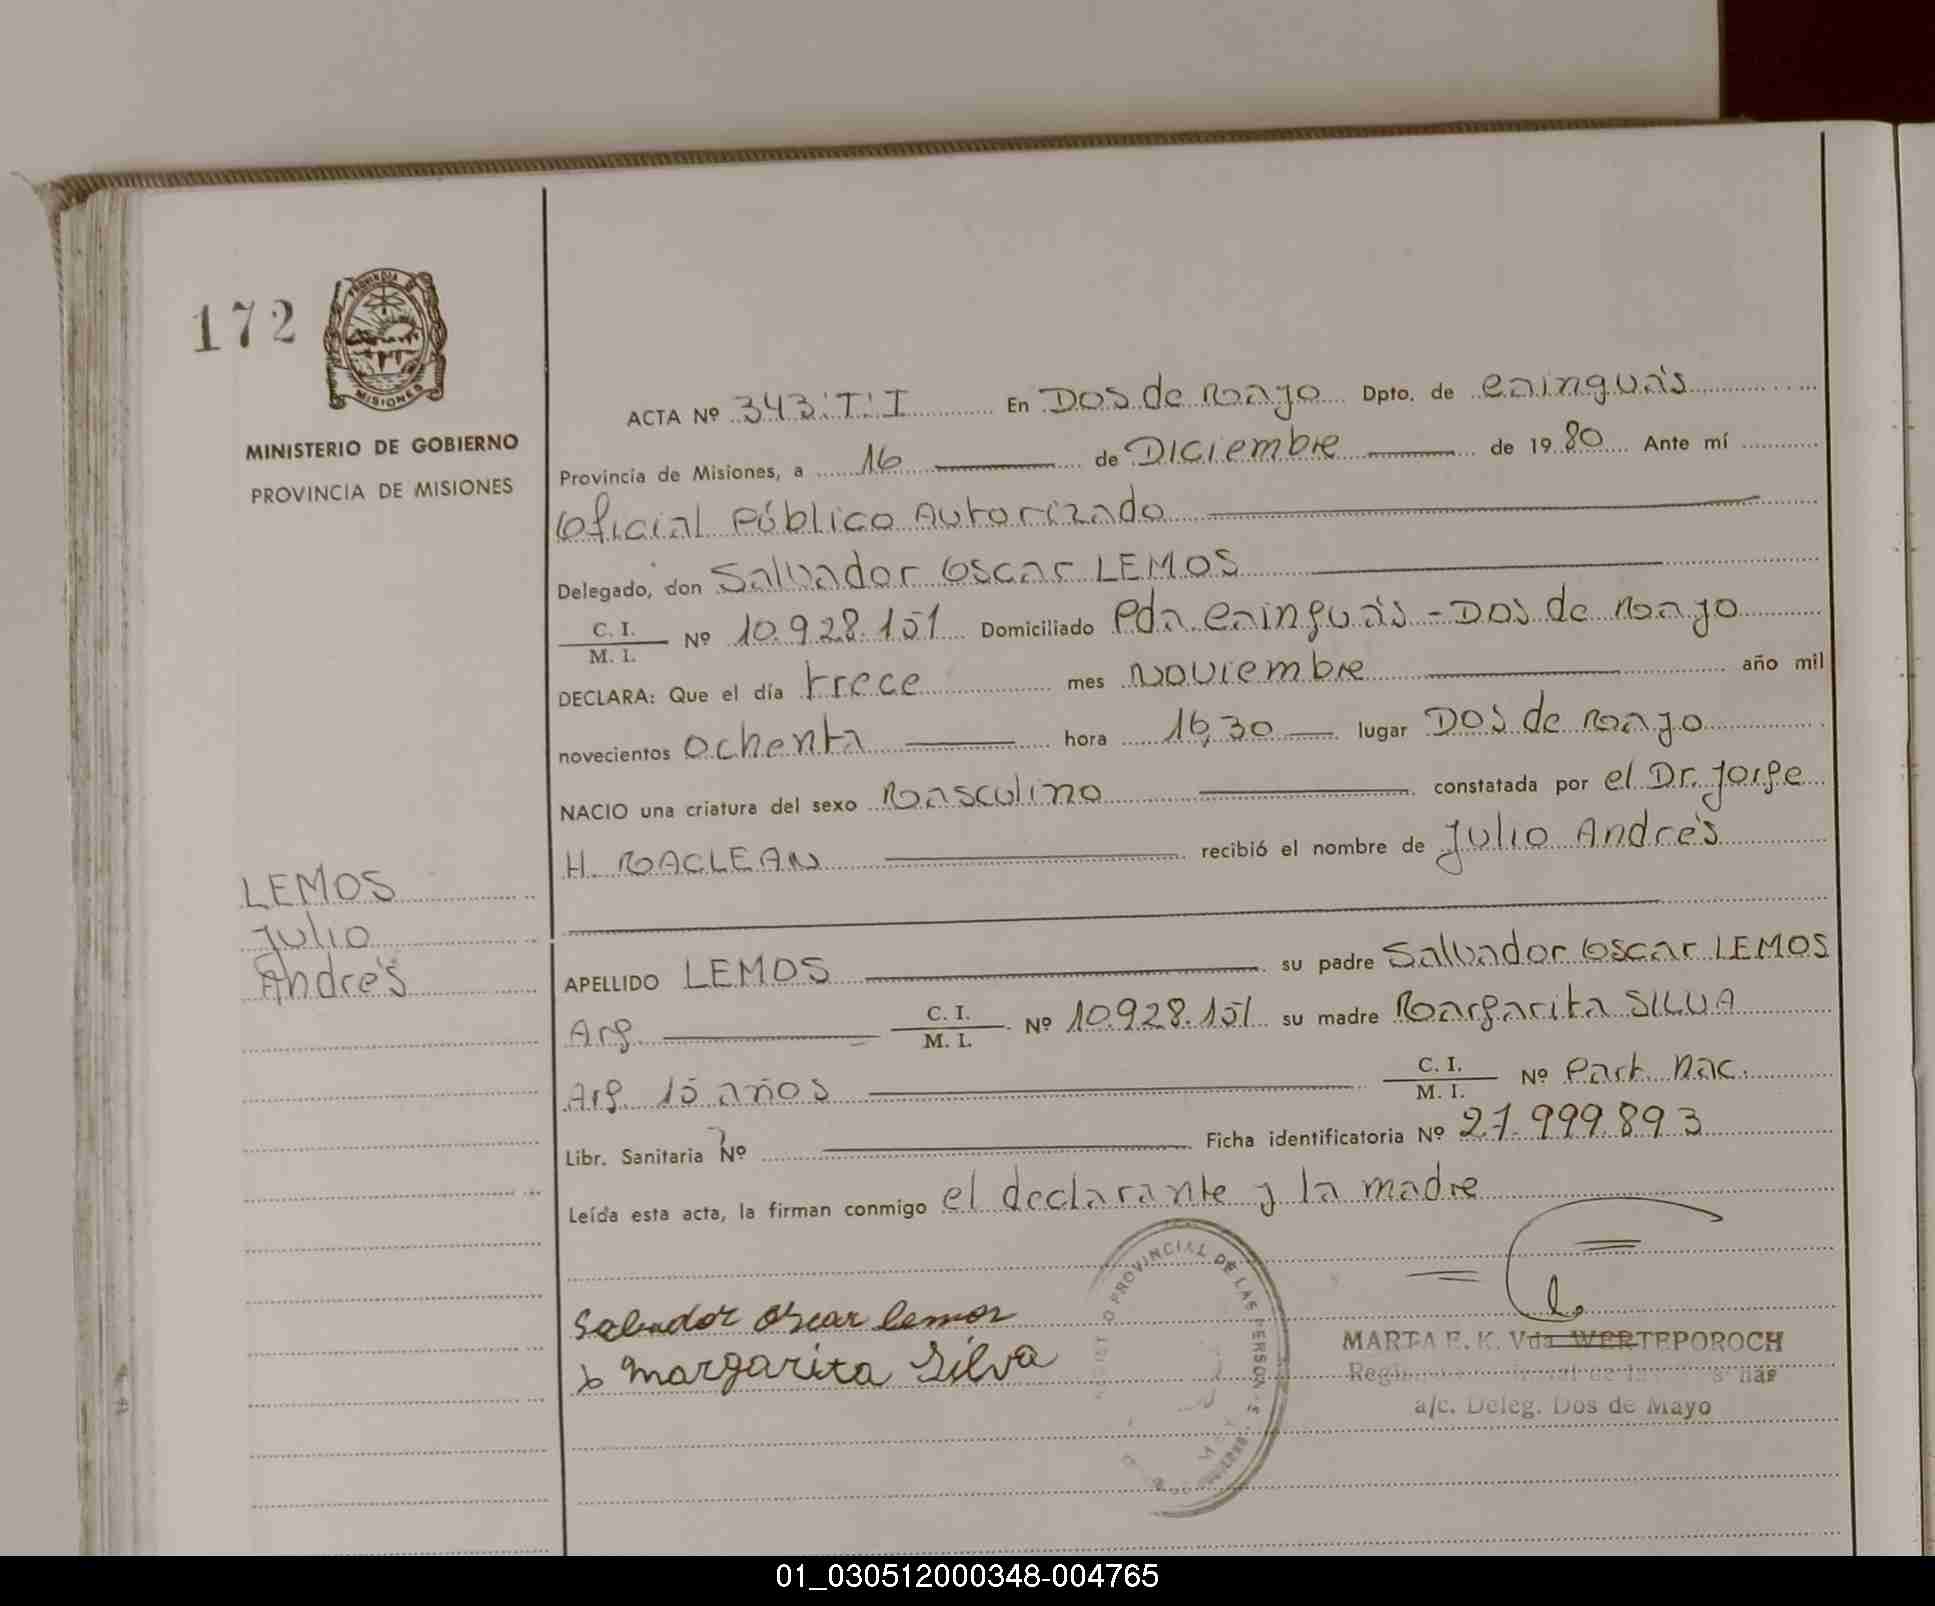 172
PROVINCIA DE
MISIONES
MINISTERIO DE GOBIERNO
PROVINCIA DE MISIONES
ACTA Nº 343. T. I En Dos de Mayo Dpto. de Cainguás
Provincia de Misiones, a 16 de Diciembre de 1980 Ante mí
Oficial Público Autorizado
Delegado, don Salvador Oscar LEMOS
C. I.
M. I. Nº 10.928.151 Domiciliado Pda. Cainguás - Dos de Mayo
DECLARA: Que el día trece mes Noviembre año mil
novecientos ochenta hora 16,30 lugar Dos de Mayo
NACIO una criatura del sexo Masculino constatada por el Dr. Jorge
H. MACLEAN recibió el nombre de Julio Andrés
LEMOS
Julio
Andrés
APELLIDO LEMOS su padre Salvador Oscar LEMOS
Arg. C. I.
M. I. Nº 10.928.151 su madre Margarita SILVA
Arg. 15 años C. I.
M. I. Nº Part. Nac.
Libr. Sanitaria Nº Ficha identificatoria Nº 27.999.893
Leída esta acta, la firman conmigo el declarante y la madre
Salvador Oscar Lemos
Margarita Silva
PROVINCIAL DE LAS PERSONAS
MARTA E. K. Vda WERTEPOROCH
a/c. Deleg. Dos de Mayo
01_030512000348-004765